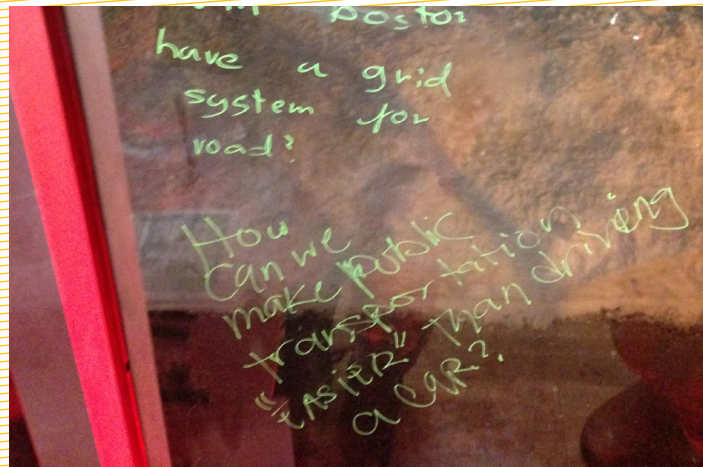 Boston
have a grid
system for
road?
How
can we
make public
transportation
"EASiER" than driving
a CAR?